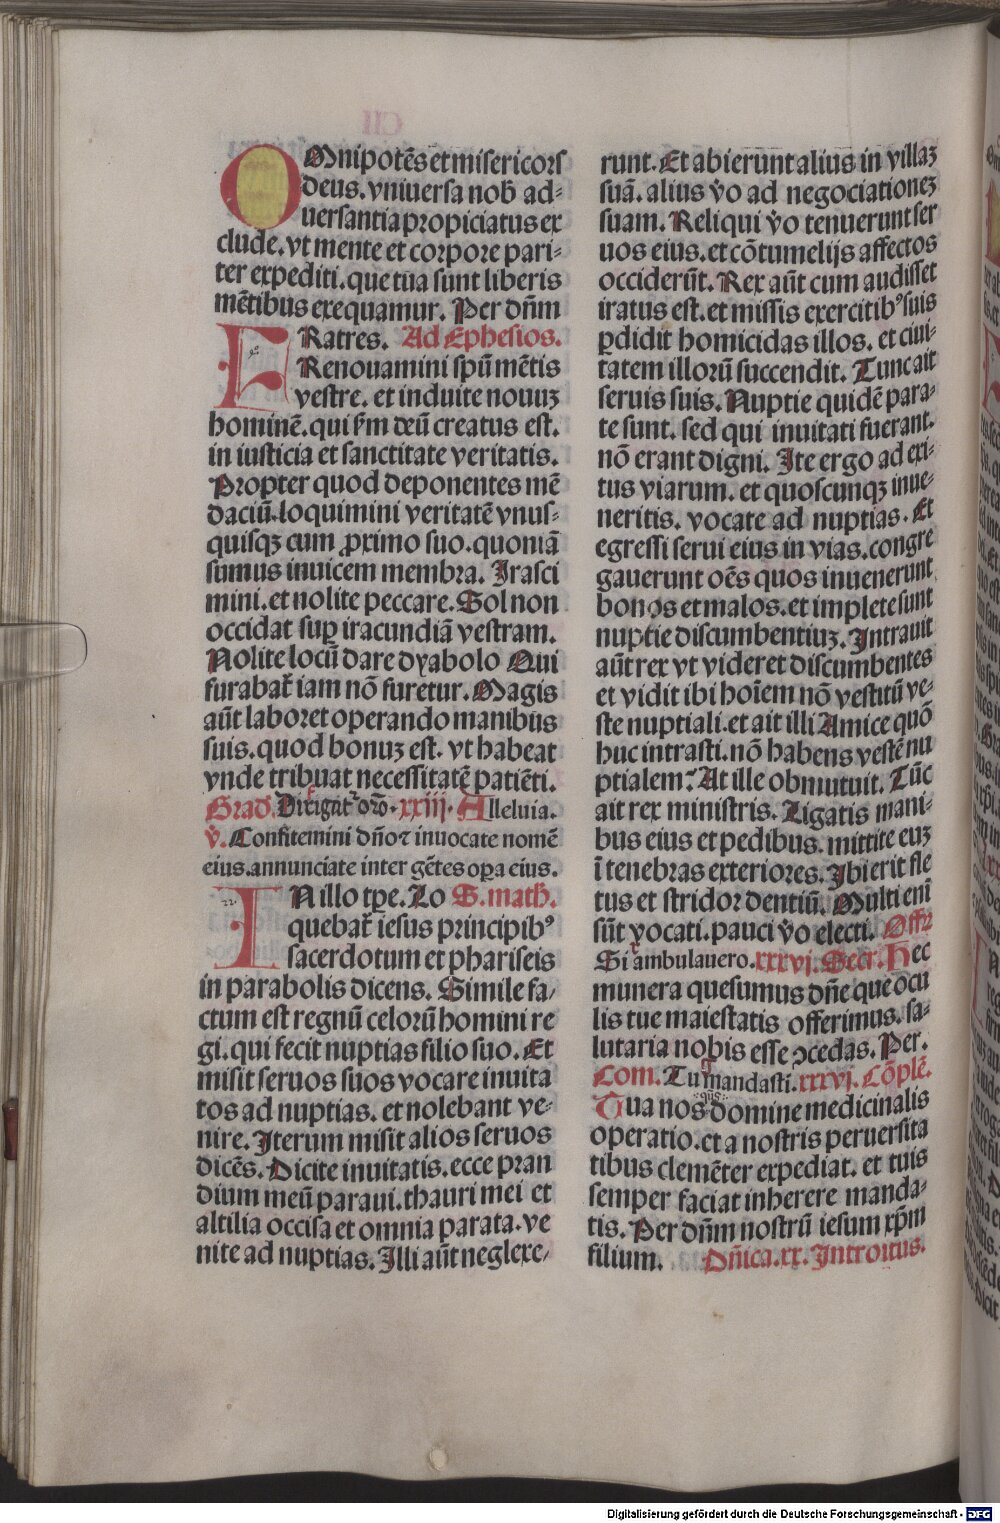 OMnipotēs et misericors
deus. vniuersa nob̄ ad⸗
uersantia propiciatus ex
clude. vt mente et corpore pari⸗
ter expediti. que tua sunt liberis
mētibus exequamur. Per dn̄m
FRatres. Ad Ephesios.
Renouamini spū mētis
vestre. et induite nouuꝫ
hominē. qui s̄m deū creatus est.
in iusticia et sanctitate veritatis.
Propter quod deponentes mē
daciū. loquimini veritatē vnus⸗
quisqꝫ cum ꝓximo suo. quoniā
sumus inuicem membra. Irasci
mini. et nolite peccare. Sol non
occidat suꝑ iracundiā vestram.
Nolite locū dare dyabolo Qui
furabat̄ iam nō furetur. Magis
aūt laboret operando manibus
suis. quod bonuꝫ est. vt habeat
vnde tribuat necessitatē patiēti.
Grad̄. Dirigat̄ orō. xxiij. Alleluia.
v̄. Confitemini dn̄o ⁊ inuocate nomē
eius. annunciate inter gētes oꝑa eius.
IN illo tꝑe. Lo S. math̄.
quebat̄ iesus principib⁹
sacerdotum et phariseis
in parabolis dicens. Simile fa⸗
ctum est regnū celorū homini re
gi. qui fecit nuptias filio suo. Et
misit seruos suos vocare inuita
tos ad nuptias. et nolebant ve⸗
nire. Iterum misit alios seruos
dicēs. Dicite inuitatis. ecce pran
dium meū paraui. thauri mei et
altilia occisa et omnia parata. ve
nite ad nuptias. Illi aūt neglexe⸗
runt. Et abierunt alius in villaꝫ
suā. alius v̄o ad negociationeꝫ
suam. Reliqui v̄o tenuerunt ser
uos eius. et cōtumelijs affectos
occiderūt. Rex aūt cum audisset
iratus est. et missis exercitib⁹ suis
ꝑdidit homicidas illos. et ciui⸗
tatem illorū succendit. Tunc ait
seruis suis. Nuptie quidē para⸗
te sunt. sed qui inuitati fuerant.
nō erant digni. Ite ergo ad exi⸗
tus viarum. et quoscunqꝫ inue⸗
neritis. vocate ad nuptias. Et
egressi serui eius in vias. congre
gauerunt oēs quos inuenerunt
bonos et malos. et implete sunt
nuptie discumbentiuꝫ. Intrauit
aūt rex vt videret discumbentes
et vidit ibi hoīem nō vestitū ve⸗
ste nuptiali. et ait illi Amice quō
huc intrasti. nō habens vestē nu
ptialem? At ille obmutuit. Tūc
ait rex ministris. Ligatis mani⸗
bus eius et pedibus. mittite euꝫ
ī tenebras exteriores. Ibi erit fle
tus et stridor dentiū. Multi enī
sūt vocati. pauci v̄o electi. Offr
Si ambulauero. xxxvj. Secr. Hec
munera quesumus dn̄e que ocu
lis tue maiestatis offerimus. sa⸗
lutaria nobis esse ↄcedas. Per.
Com. Tu mandasti. xxxvj. Cōplē.
Tua nos qūs: domine medicinalis
operatio. et a nostris peruersita
tibus clemēter expediat. et tuis
semper faciat inherere manda⸗
tis. Per dn̄m nostrū iesum xp̄m
filium. Dn̄ica. xx. Introitus.
Digitalisierung gefördert durch die Deutsche Forschungsgemeinschaft - DFG